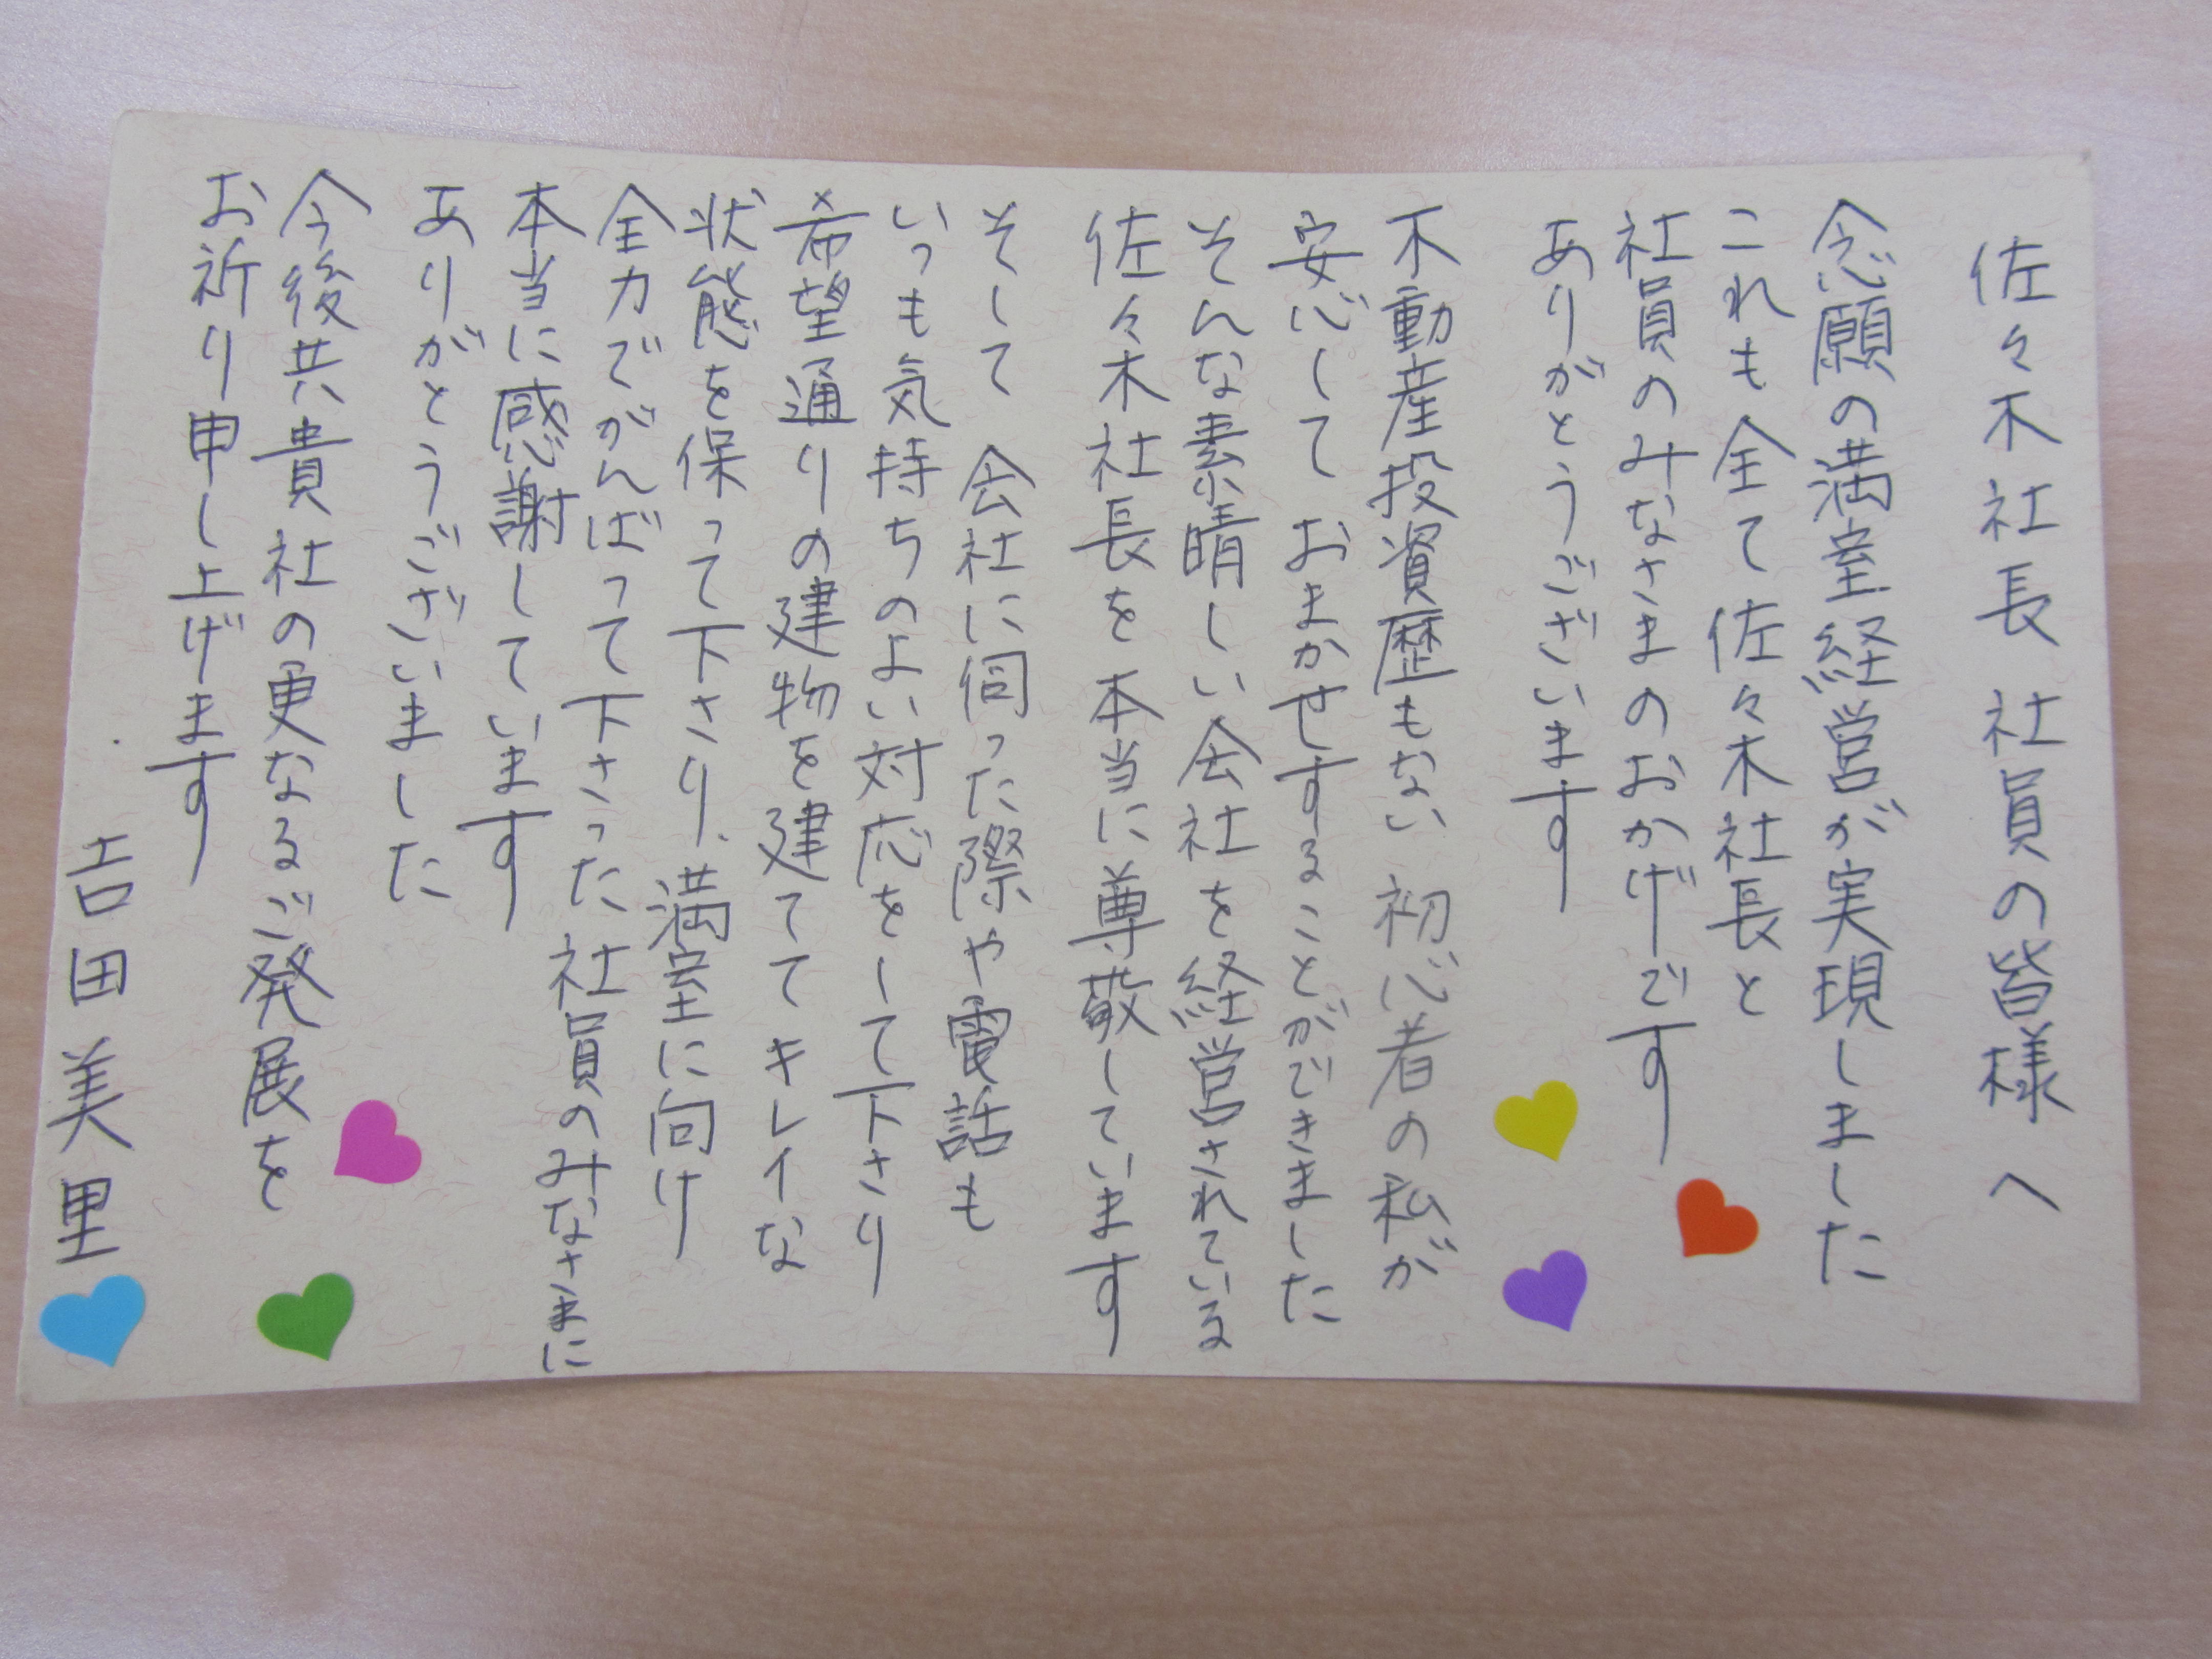 佐々木社長 社員の皆様へ
念願の満室経営が実現しました
これも全て佐々木社長と
社員のみなさまのおかげです
ありがとうございます
不動産投資歴もない 初心者の私が
安心して おまかせすることができました
そんな素晴しい会社を経営されている
佐々木社長を本当に尊敬しています
そして 会社に伺った際や電話も
いつも気持ちのよい対応をして下さり
希望通りの建物を建ててキレイな
状態を保って下さり、満室に向け
全力でがんばって下さった社員のみなさまに
本当に感謝しています
ありがとうございました
今後共貴社の更なるご発展を
お祈り申し上げます
吉田美里